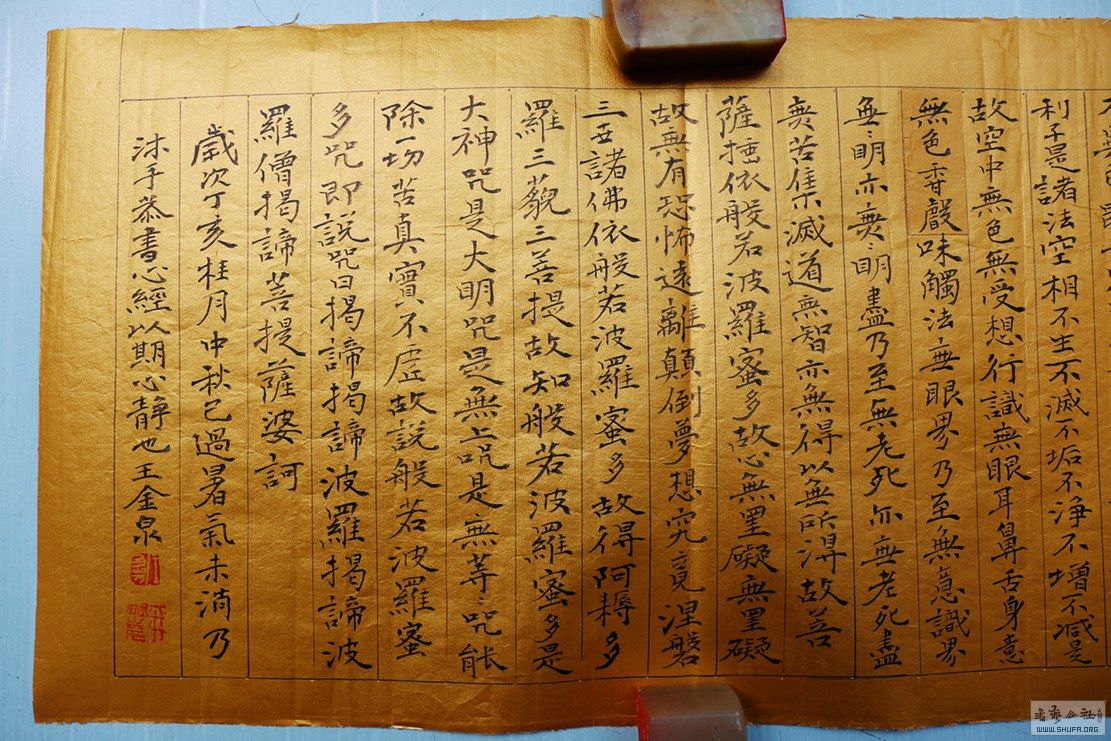 利子是諸法空相不生不滅不垢不淨不增不減是
故空中無色無受想行識無眼耳鼻舌身意
無色香聲味觸法無眼界乃至無意識界
無〻明亦無〻明盡乃至無老死亦無老死盡
無苦集滅道無智亦無得以無所得故菩
薩埵依般若波羅蜜多故心無罣礙無罣礙
故無有恐怖遠離顛倒夢想究竟涅磐
三世諸佛依般若波羅蜜多故得阿耨多
羅三藐三菩提故知般若波羅蜜多是
大神咒是大明咒是無上咒是無等〻咒能
除一切苦真實不虛故說般若波羅蜜
多咒即說咒曰揭諦揭諦波羅揭諦波
羅僧揭諦菩提薩婆訶
歲次丁亥桂月中秋已過暑氣未消乃
沐手恭書心經以期心靜也王金泉
書法公社
WWW.SHUFA.ORG